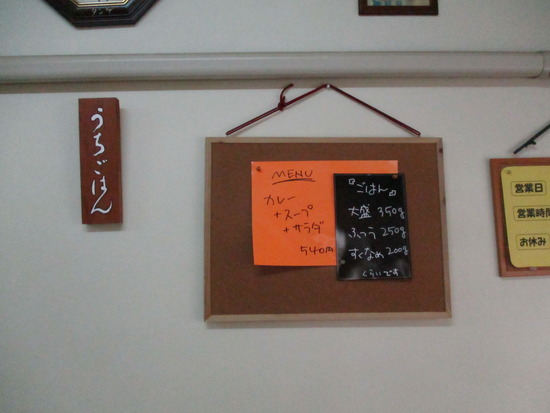 うちごはん
MENU
カレー
+スープ
+サラダ
540円
『ごはん』
大盛 350g
ふつう 250g
すくなめ 200g
くらいです
営業日
営業時間
お休み